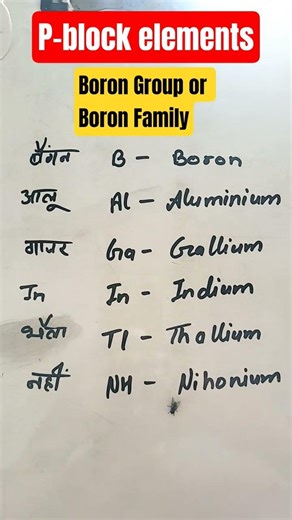 P-block elements
Boron Group or
Boron Family
बैंगन B - Boron
आलू Al - Aluminium
गाजर Ga - Gallium
In In - Indium
थैला Tl - Thallium
नहीं NH - Nihonium